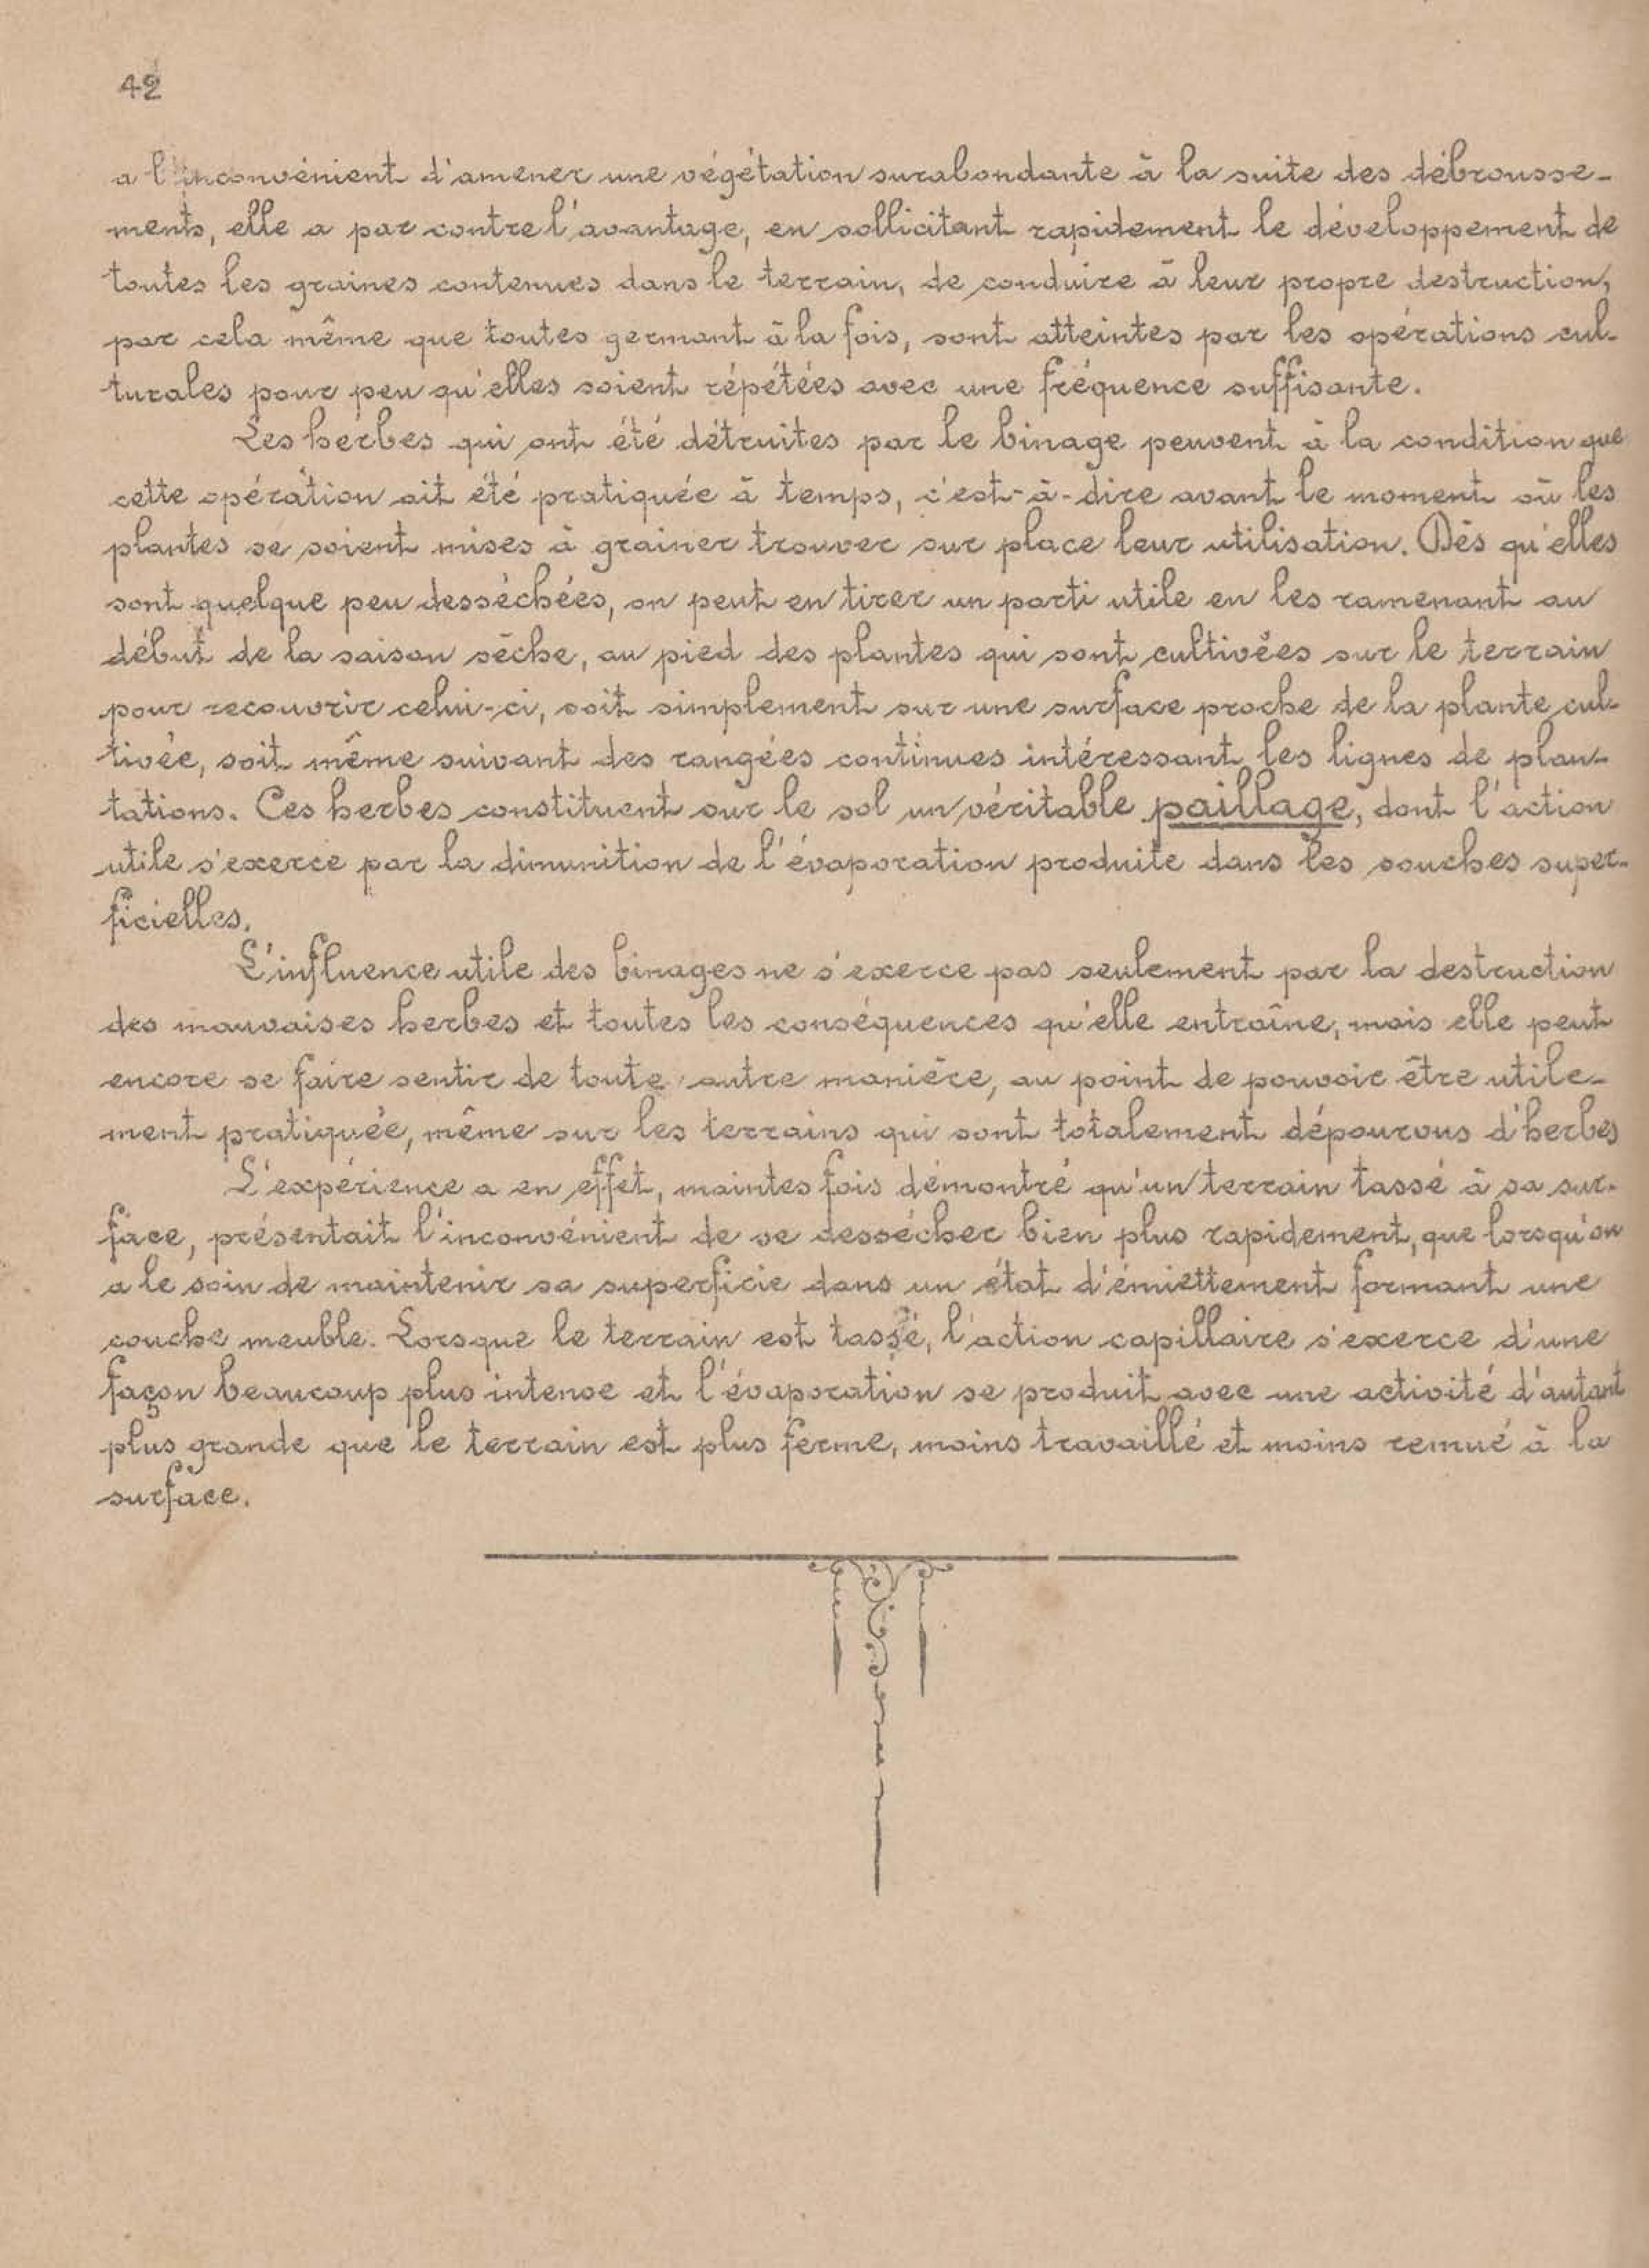 42
a l'inconvénient d'amener une végétation surabondante à la suite des débrousse-
ments, elle a par contre l'avantage, en sollicitant rapidement le développement de
toutes les graines contenues dans le terrain, de conduire à leur propre destruction,
par cela même que toutes germant à la fois, sont atteintes par les opérations cul-
turales pour peu qu'elles soient répétées avec une fréquence suffisante.
Les herbes qui ont été détruites par le binage peuvent à la condition que
cette opération ait été pratiquée à temps, c'est-à-dire avant le moment où les
plantes se soient mises à grainer trouver sur place leur utilisation. Dès qu'elles
sont quelque peu desséchées, on peut en tirer un parti utile en les ramenant au
début de la saison sèche, au pied des plantes qui sont cultivées sur le terrain
pour recouvrir celui-ci, soit simplement sur une surface proche de la plante cul-
tivée, soit même suivant des rangées continues intéressant les lignes de plan-
tations. Ces herbes constituent sur le sol un véritable paillage, dont l'action
utile s'exerce par la dimunition de l'évaporation produite dans les couches super-
ficielles.
L'influence utile des binages ne s'exerce pas seulement par la destruction
des mauvaises herbes et toutes les conséquences qu'elle entraîne, mais elle peut
encore se faire sentir de toute autre manière, au point de pouvoir être utile-
ment pratiquée, même sur les terrains qui sont totalement dépourvus d'herbes
L'expérience a en effet, maintes fois démontré qu'un terrain tassé à sa sur-
face, présentait l'inconvénient de se dessécher bien plus rapidement, que lorsqu'on
a le soin de maintenir sa superficie dans un état d'émiettement formant une
couche meuble. Lorsque le terrain est tassé, l'action capillaire s'exerce d'une
façon beaucoup plus intense et l'évaporation se produit avec une activité d'autant
plus grande que le terrain est plus ferme, moins travaillé et moins remué à la
surface.